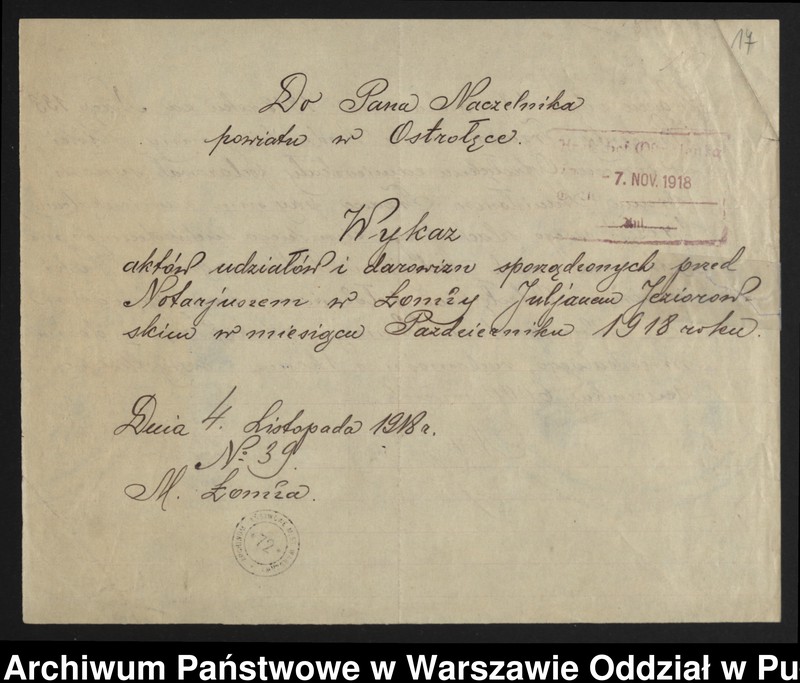 17
Do Pana Naczelnika
powiatu w Ostrołęce.
- 7. NOV. 1918
Wykaz
aktów udziałów i darowizn sporządzonych przed
Notarjuszem w Łomży Juljanem Jeziorow-
skim w miesiącu Pazdzierniku 1918 roku.
Dnia 4. Listopada 1918 r.
No 39.
M. Łomża.
72
Archiwum Państwowe w Warszawie Oddział w Pu